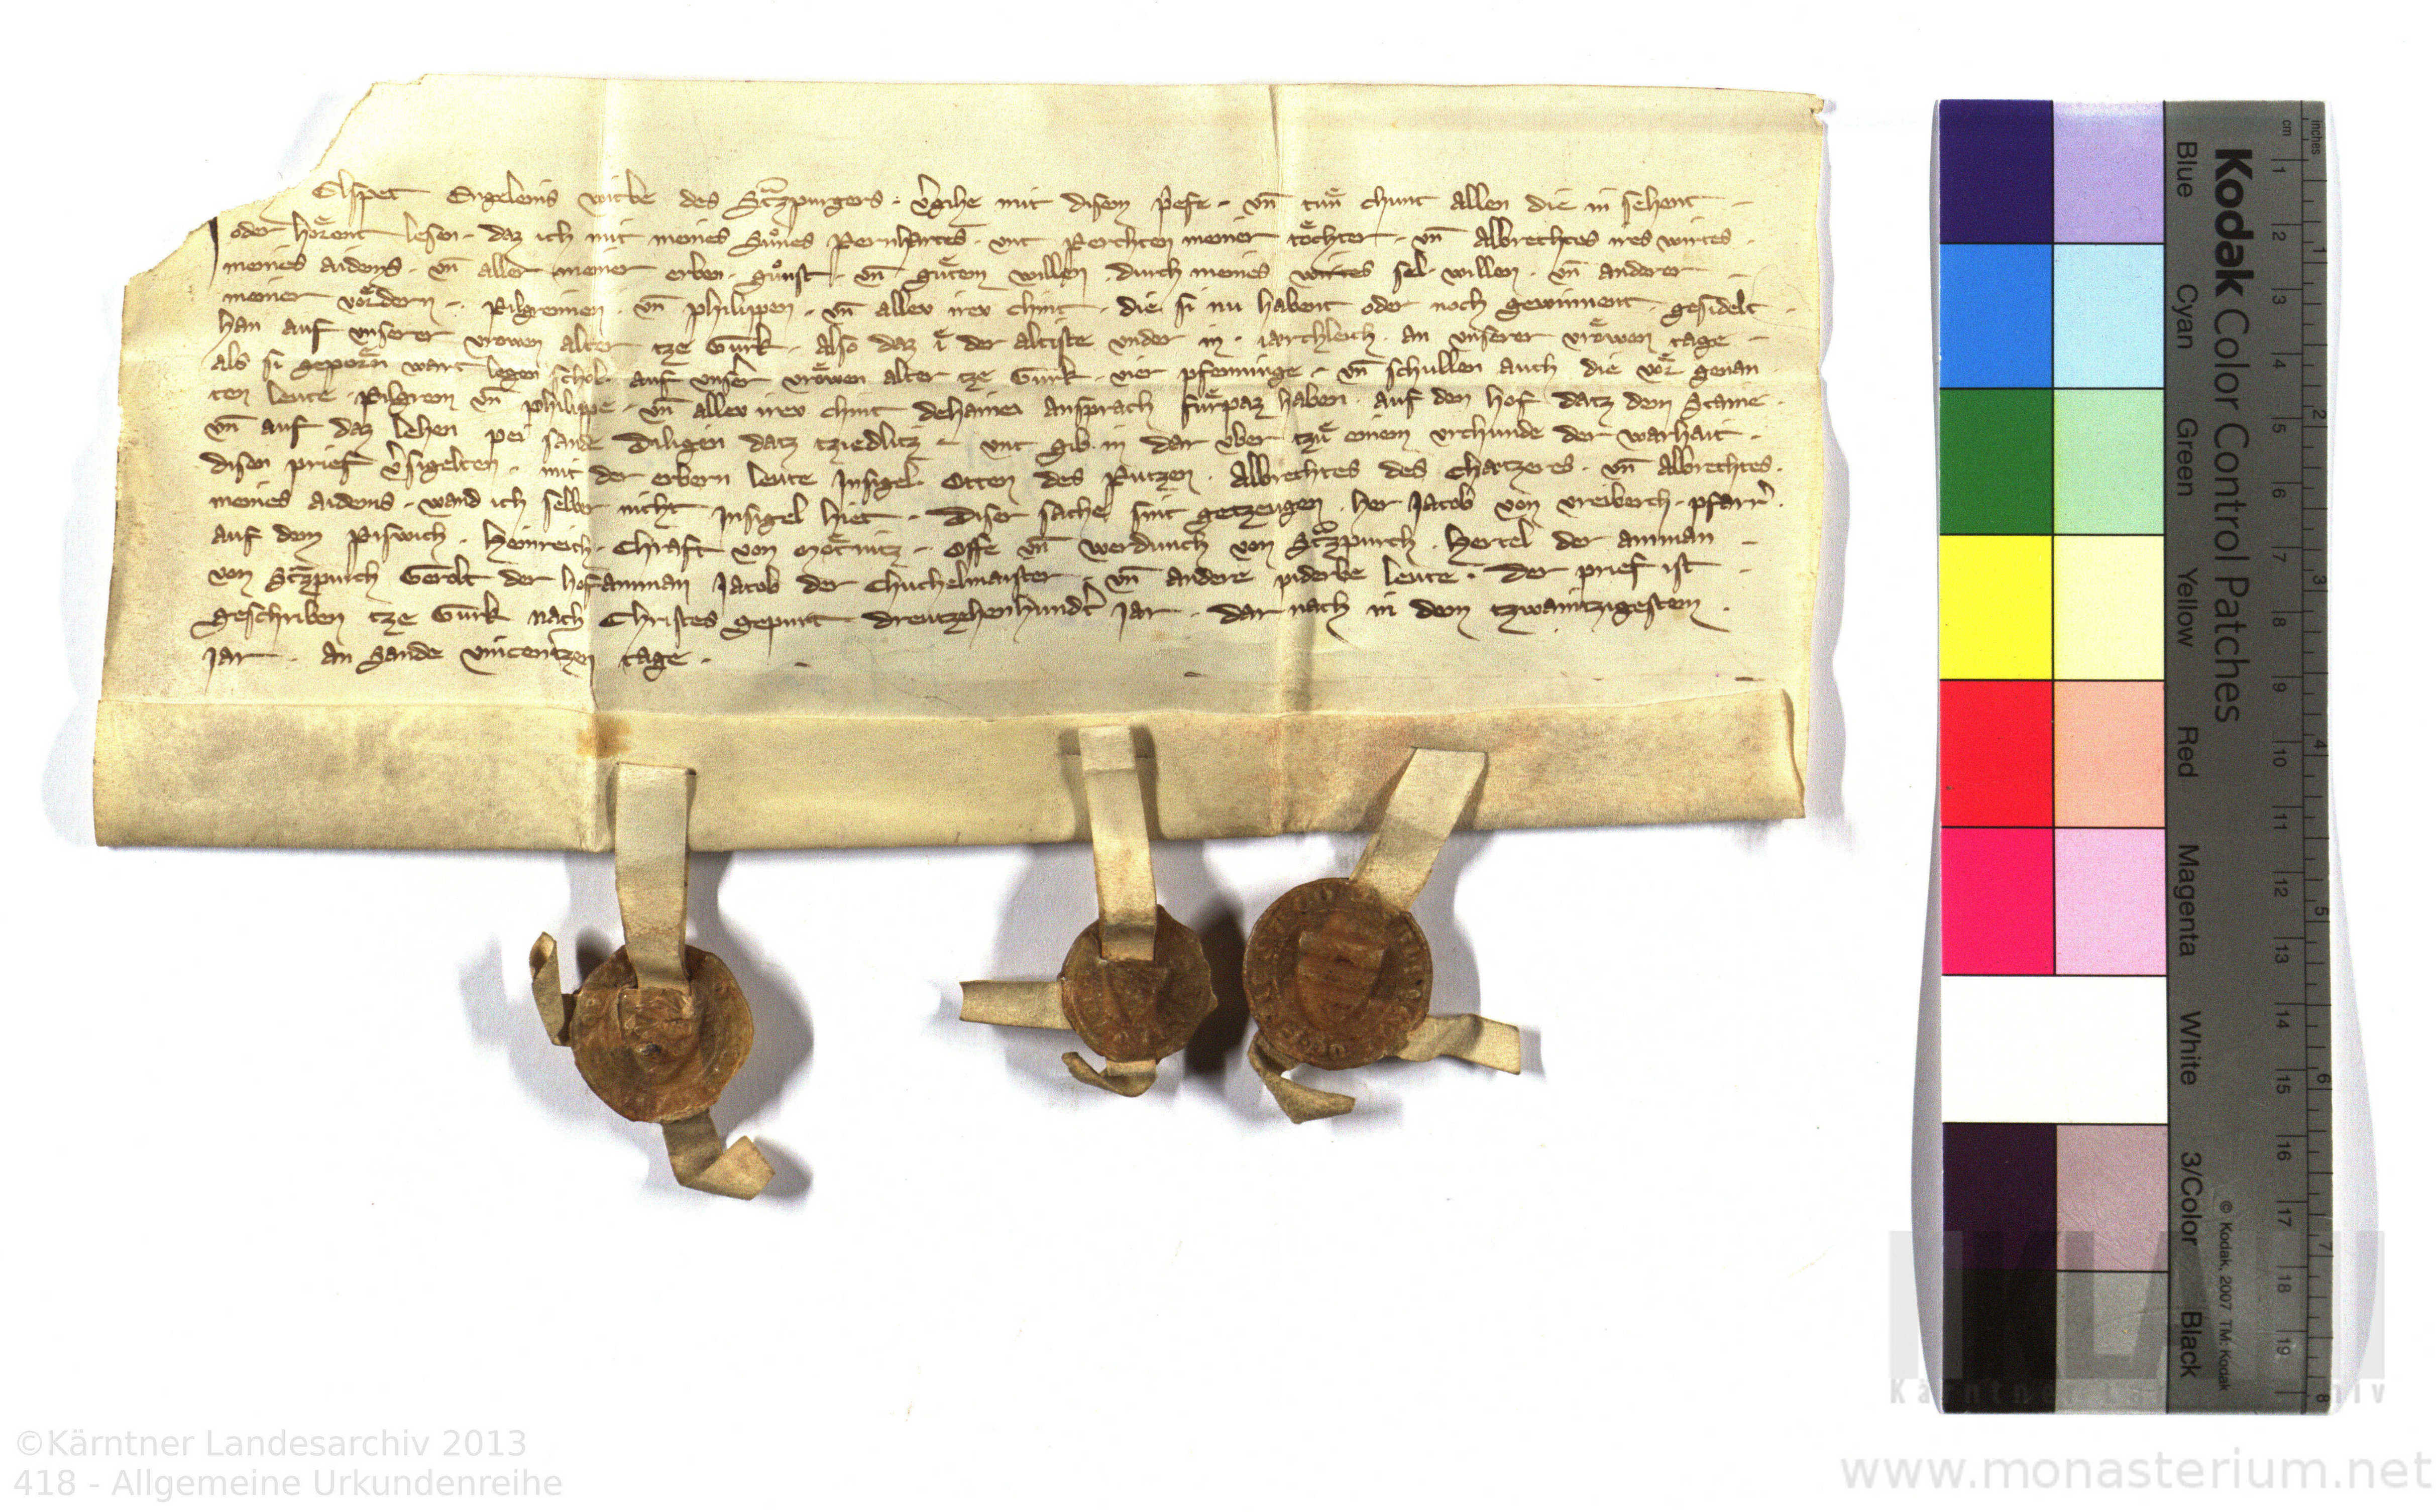 Elspet Engeleins witbe des Strazpurgers · v̾gihe mit disem prefe · vn̄ tuͤn chunt allen die in sehent
oder hoͤrent lesen · daz ich mit meines Suͦnes Pernhartes · vnt Perchten meiner toͤchter · vn̄ Albrechtes ires wirtes ·
meines aidems · vn̄ aller meiner erben · guͦnst · vn̄ guͤtem willen · durch meines wirtes sel · willen · vn̄ anderer
meiner voͤrdern · Pilgreimen · vn̄ philippen · vn̄ allev irev chint · die si nu habent oder noch gewinnent · gesidelt ·
han auf vnserer vrowen alter tze Gurk · also daz ie der altiste vnder in · iaerchleich · an vnserer vroͤwen tage
als si geporn wart legen schol · auf vnser vroͤwen alter tze Gurk · vier pfenninge · vn̄ schullen auch die voͤr genan
ten leute · Pilgreim vn̄ philippe · vn̄ allev irev chint dehainev ansprach fuͤrpaz haben · auf den hof datz dem Staine ·
vn̄ auf daz lehen pei sande Diligen datz tziedlitz · vnt gib in dar vber tzuͤ einem vrchunde der warhait ·
disen prief v̾sigelten · mit der erbern leute Insigel · Otten des Putzen · Albrechtes des Chaetzeres · vn̄ Albrechtes ·
meines aidems · wand ich selber nicht Insigel hiet · Diser sache sint getzeugen · her Jacob von vreiberch · pfarr̾ ·
auf dem Piswich · Heinreich · Chraft von Moͤtnitz · Offe vn̄ werdunch von Strazpurch · Hertel der amman
von Strazpurch Gerolt der hofamman Jacob der Chuchelmaister · vn̄ andere piderbe leute · Der prief ist
geschriben tze Gurk nach Christes gepurt dreutzehenhundt̾ Jar · dar nach in dem tzwaintzigestem ·
Jar · An Sande vincentzen tage ·
Kodak Color Control Patches
Blue Cyan Green Yellow Red Magenta White 3/Color Black
© Kodak, 2007 TM: Kodak
cm 1 2 3 4 5 6 7 8 9 10 11 12 13 14 15 16 17 18 19
inches 1 2 3 4 5 6 7 8
©Kärntner Landesarchiv 2013
418 - Allgemeine Urkundenreihe
www.monasterium.net